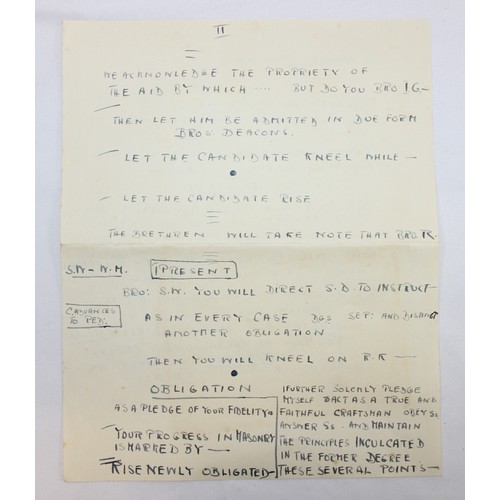 II
WE ACKNOWLEDGE THE PROPRIETY OF
THE AID BY WHICH .... BUT DO YOU BRO. I.G—
THEN LET HIM BE ADMITTED IN DUE FORM
BROS. DEACONS.
— LET THE CANDIDATE KNEEL WHILE —
— LET THE CANDIDATE RISE
THE BRETHREN WILL TAKE NOTE THAT BRO. R.
S.W - W.M. I PRESENT
BRO: S.W. YOU WILL DIRECT S.D. TO INSTRUCT—
C. ADVANCES
TO PED.
AS IN EVERY CASE DGS SEP: AND DISTINCT
ANOTHER OBLIGATION
THEN YOU WILL KNEEL ON R.K —
OBLIGATION
AS A PLEDGE OF YOUR FIDELITY
YOUR PROGRESS IN MASONRY
IS MARKED BY —
RISE NEWLY OBLIGATED—
I FURTHER SOLEMLY PLEDGE
MYSELF ACT AS A TRUE AND
FAITHFUL CRAFTSMAN OBEY SS
ANSWER SS. AND MAINTAIN
THE PRINCIPLES INCULCATED
IN THE FORMER DEGREE
THESE SEVERAL POINTS—